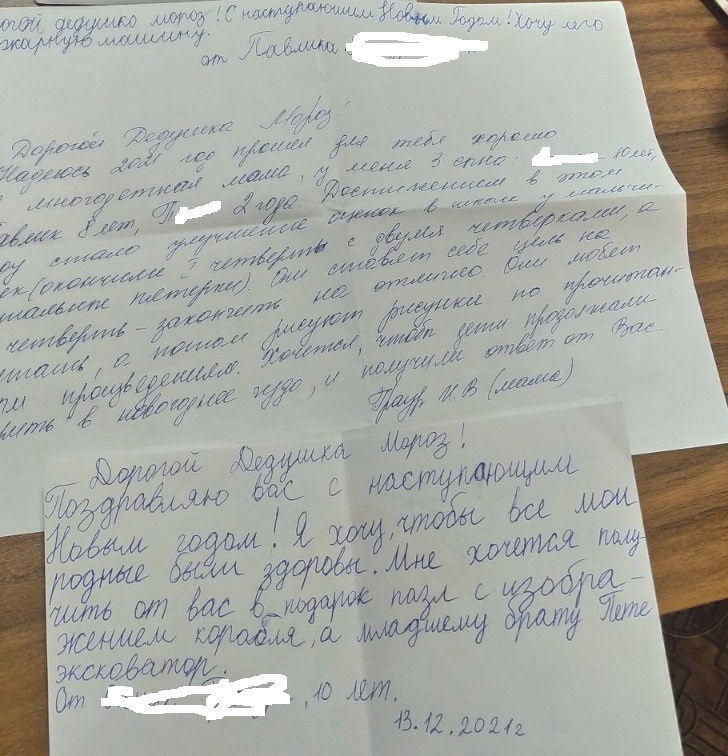 огой дедушко мороз! С наступающим Новым Годом! Хочу лего
жарную машину.
от Павлика
Дорогой Дедушка Мороз!
Надеюсь 2021 год прошел для тебя хорошо
многодетная мама, у меня 3 сына: 10 лет,
авлик 8 лет, П 2 года. Достижением в этом
оду стало улучшение оценок в школе у мальчи-
ек (окончили I четверть с двумя четверками, а
тальные пятерки). Они ставят себе цель на
четверть - закончить на отлично. Они любят
итать, а потом рисуют рисунки по прочитан-
ым произведениям. Хочется, чтобы дети продолжали
рить в новогоднее чудо, и получили ответ от Вас
И В (мама)
Дорогой Дедушка Мороз!
Поздравляю вас с наступающим
Новым годом! Я хочу, чтобы все мои
родные были здоровы. Мне хочется полу-
чить от вас в подарок пазл с изобра-
жением корабля, а младшему брату Пете
эксковатор.
От , 10 лет.
13.12.2021г